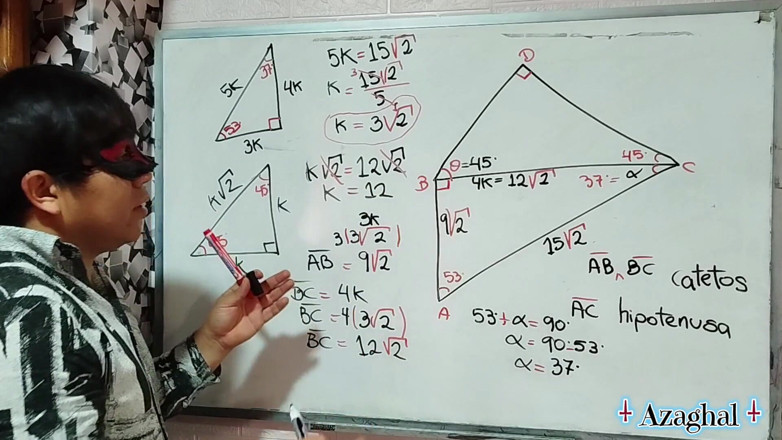 5K
37
4K
53
3K
K√2
45
K
K
5K = 15√2
K = 15√2/5
3
K = 3√2
K√2 = 12√2
K = 12
3K
3(3√2)
AB = 9√2
BC = 4K
BC = 4(3√2)
BC = 12√2
D
θ = 45°
45°
B
4K = 12√2
37° = α
C
9√2
15√2
53
A
AB ∧ BC catetos
AC hipotenusa
53 + α = 90°
α = 90 - 53°
α = 37°
Azaghal